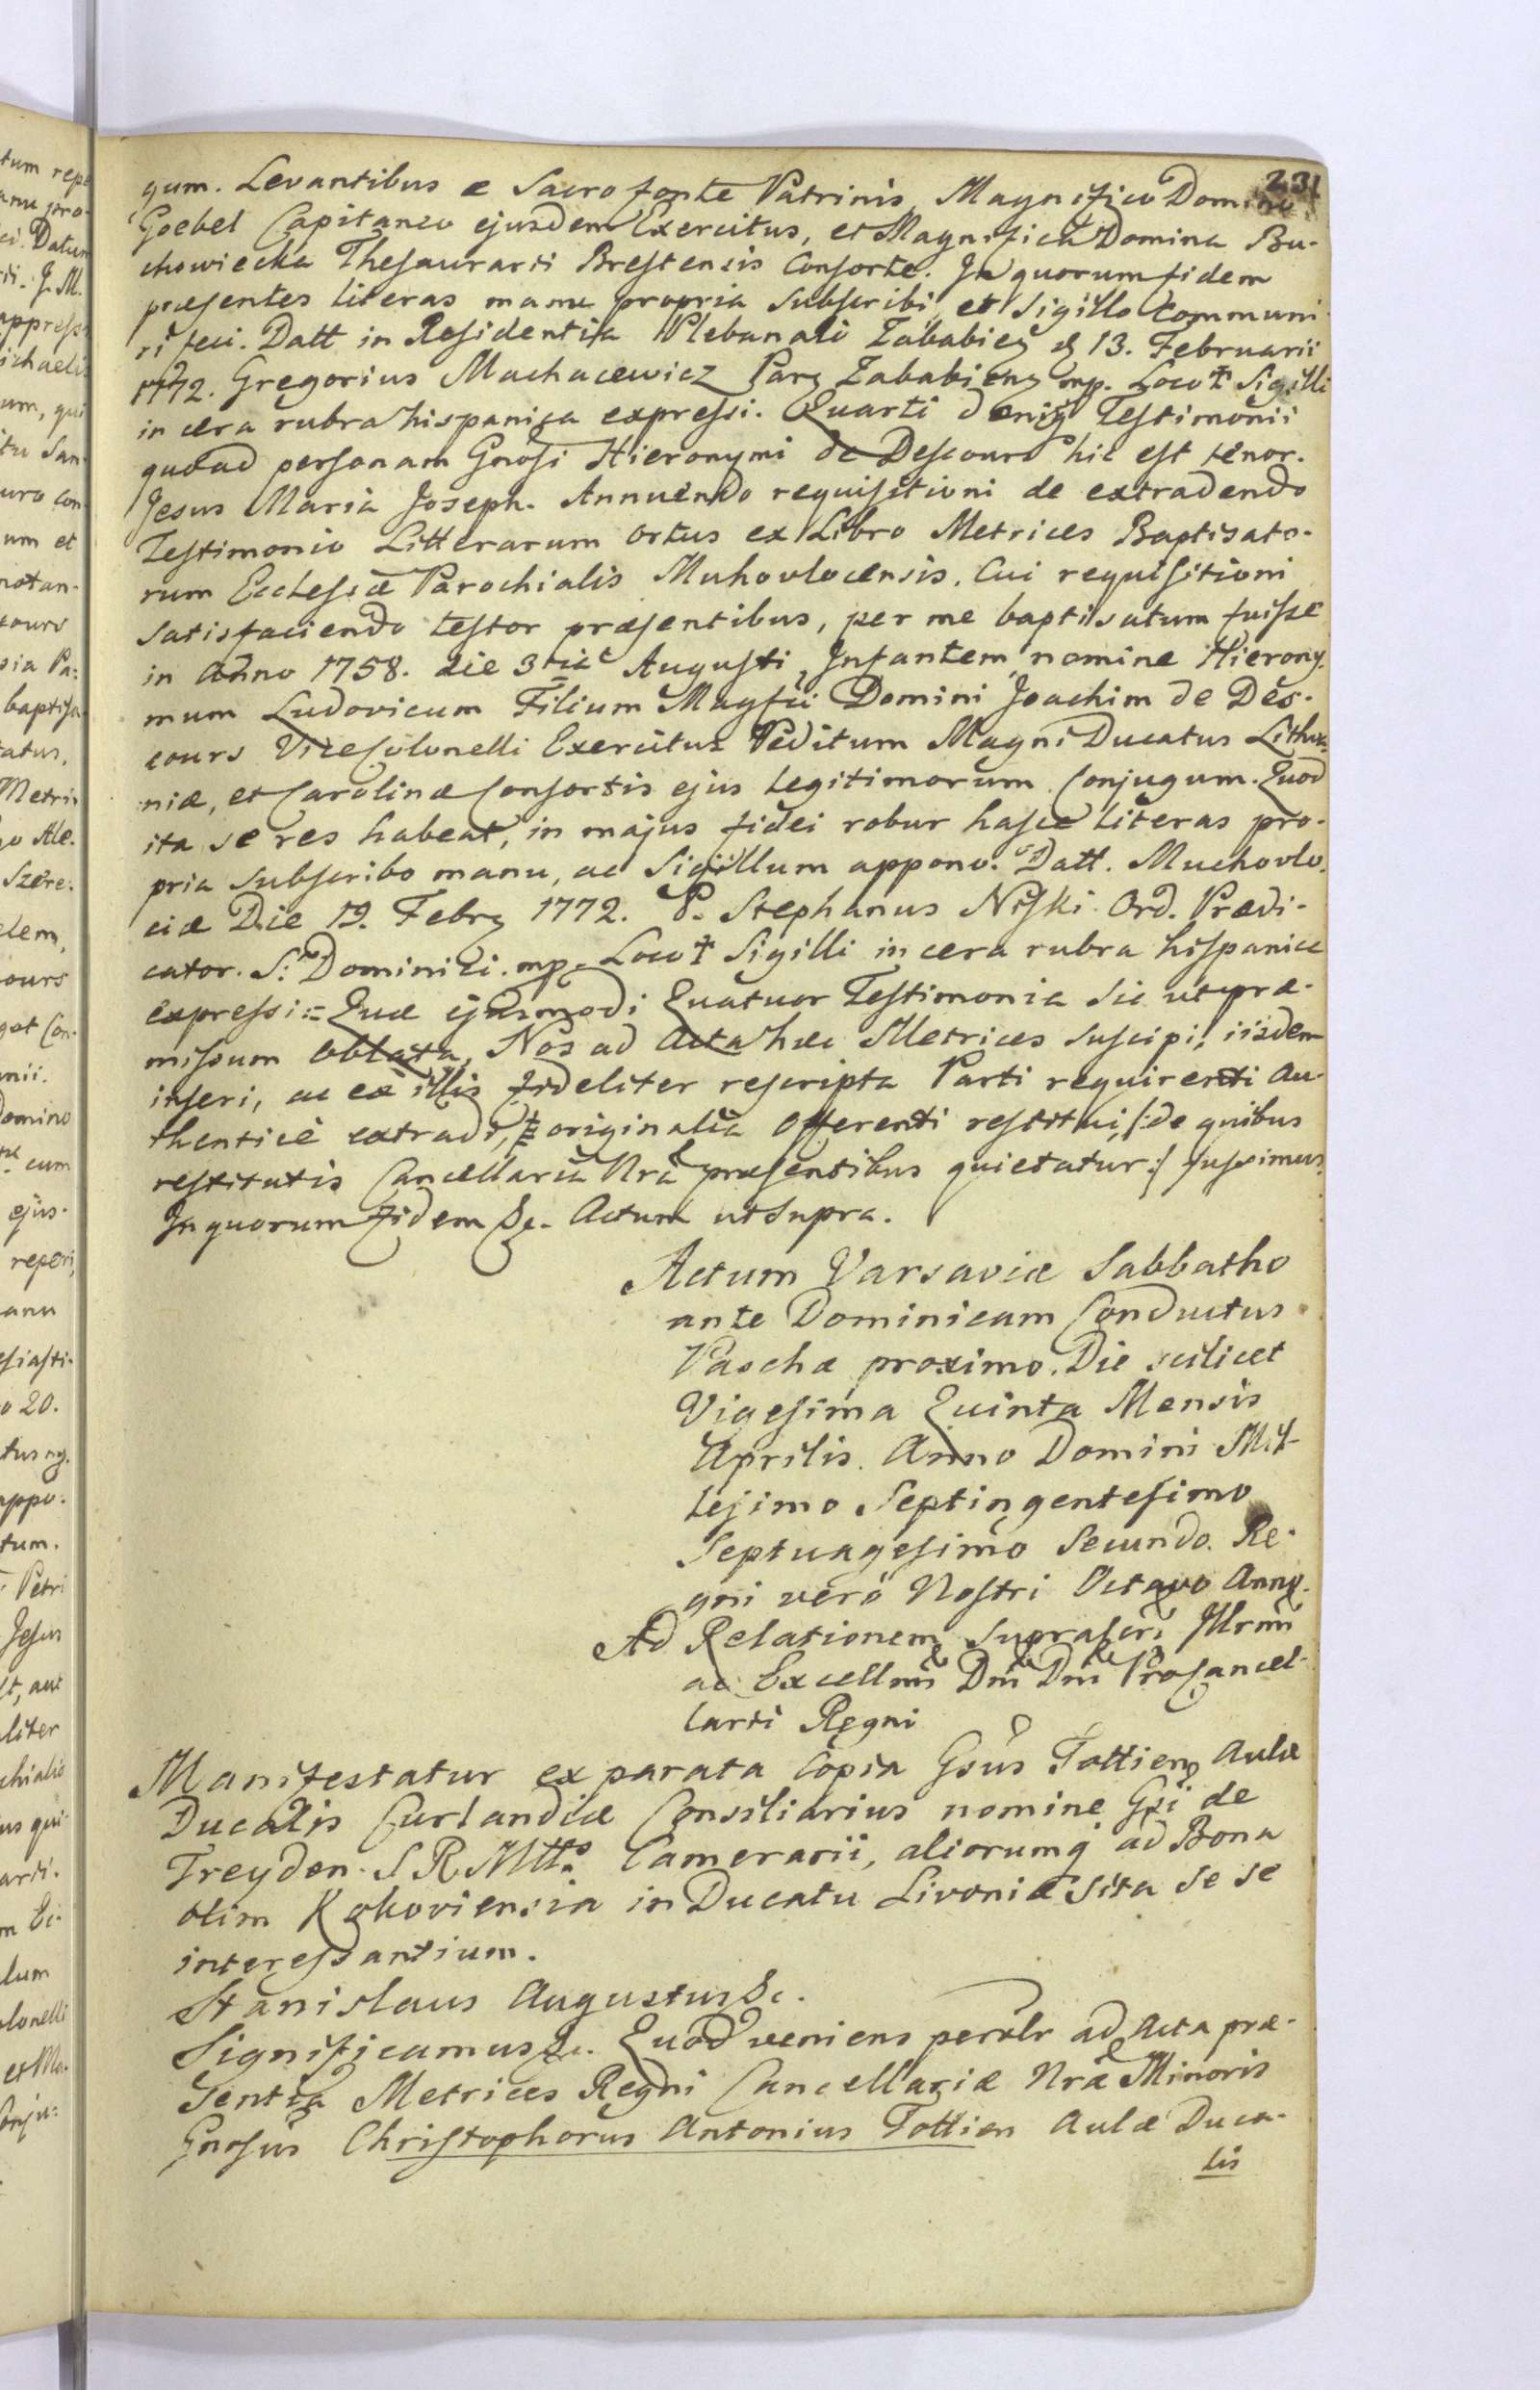 231
gum. Levantibus e Sacro fonte Patrinis, Magnifico Domino
Goebel Capitaneo ejusdem Exercitus, et Magnifica Domina Bu-
chowiecka Thesaurarii Brestensis Consorte. In quorum fidem
præsentes literas manu propria subscribi, et Sigillo communi-
ri feci. Datt in Residentia Plebanali Zababien d 13. Februarii
1772. Gregorius Machacewicz Par Zababien mp. Loco † Sigilli
in cera rubra hispanica expressi. Quarti deniq Testimonii
quoad personam Gnosi Hieronymi de Descours hic est tenor.
Jesus Maria Joseph. Annuendo requisitioni de extradendo
Testimonio Litterarum Ortus ex Libro Metrices Baptisato-
rum Ecclesiæ Parochialis Muhovlocensis. Cui requisitioni
satisfaciendo testor præsentibus, per me baptisatum fuisse
in Anno 1758. die 3tia Augusti, Infantem nomine Hierony-
mum Ludovicum Filium Magfci Domini Joachim de Des-
cours ViceColonelli Exercitus Peditum Magni Ducatus Lithua-
niæ, et Carolinæ Consortis ejus legitimorum Conjugum. Quod
ita se res habeat, in majus fidei robur hasce literas pro-
pria subscribo manu, ac Sigillum appono. Datt. Muchovlo-
ciæ Die 19. Febr 1772. P. Stephanus Niski Ord. Prædi-
cator. S: Dominici. mp. Loco † Sigilli in cera rubra hispanica
expressi = Quæ ejusmodi Quatuor Testimonia sic ut præ-
missum oblata, Nos ad Acta hæc Metrices suscipi, iisdem
inseri, ac ex illis fideliter rescripta Parti requirenti Au-
thenticè extradi, originalia Offerenti restitui /:de quibus
restitutis Cancellaria Nra præsentibus quietatur:/ jussimus.
In quorum fidem &c. Actum ut supra.
Actum Varsaviæ Sabbatho
ante Dominicam Conductus
Paschæ proximo. Die scilicet
Vigesima Quinta Mensis
Aprilis. Anno Domini Mil-
lesimo Septingentesimo
Septuagesimo Secundo. Re-
gni verò Nostri Octavo Anno.
Ad Relationem suprascri Illrmi
ac Excellmi Dni Dni ProCancel-
larii Regni
Manifestatur ex parata Copia Gsus Tottien Aulæ
Ducalis Curlandiæ Consiliarius nomine Gsi de
Treyden S R Mtts Camerarii, aliorumq ad Bona
olim Kokoviensia in Ducatu Livoniæ sita se se
interessantium.
Stanislaus Augustus &c.
Significamus &c. Quod veniens persolr ad Acta præ-
sentia Metrices Regni Cancellariæ Nræ Minoris
Gnosus Christophorus Antonius Tottien Aulæ Duca-
lis